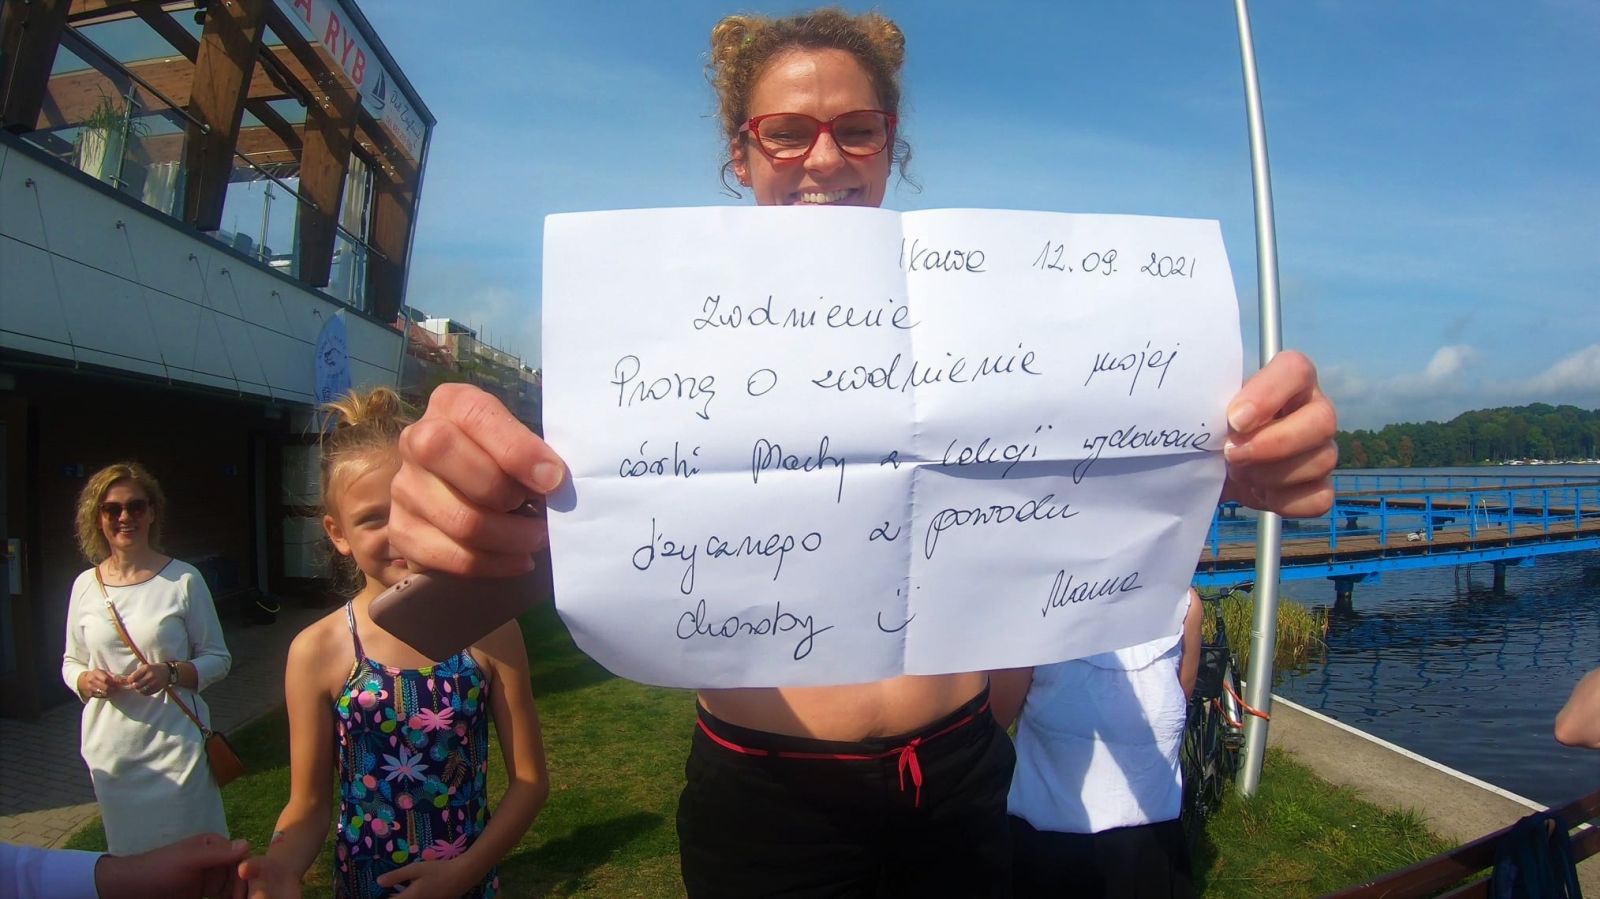 A RYB
Iława 12.09.2021
Zwolnienie
Proszę o zwolnienie mojej
córki Machy z lekcji wychowania
fizycznego z powodu
choroby :)
Mama